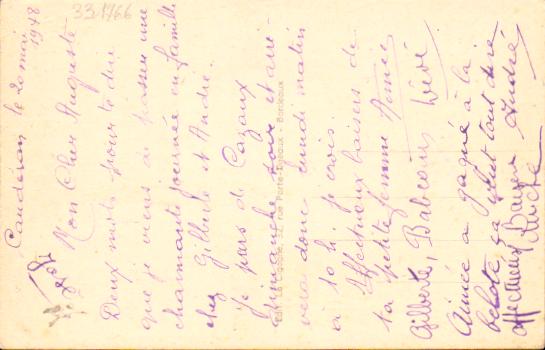 33.1766
Caudéran le 20 mai 1948
Mon Cher Auguste
Deux mots pour te dire
que je viens de passer une
charmante journée en famille
chez Gilberte et André.
Je pars de Cazaux
dimanche soir et arri-
verai donc lundi matin
à 10 h je crois.
Affectueux baisers de
ta petite femme Aimée
Gilberte, Babeaux
Aimée a gagné à la
belote, ça veut tout dire
Affectueux Baisers André
rue Porte-Dijeaux - Bordeaux